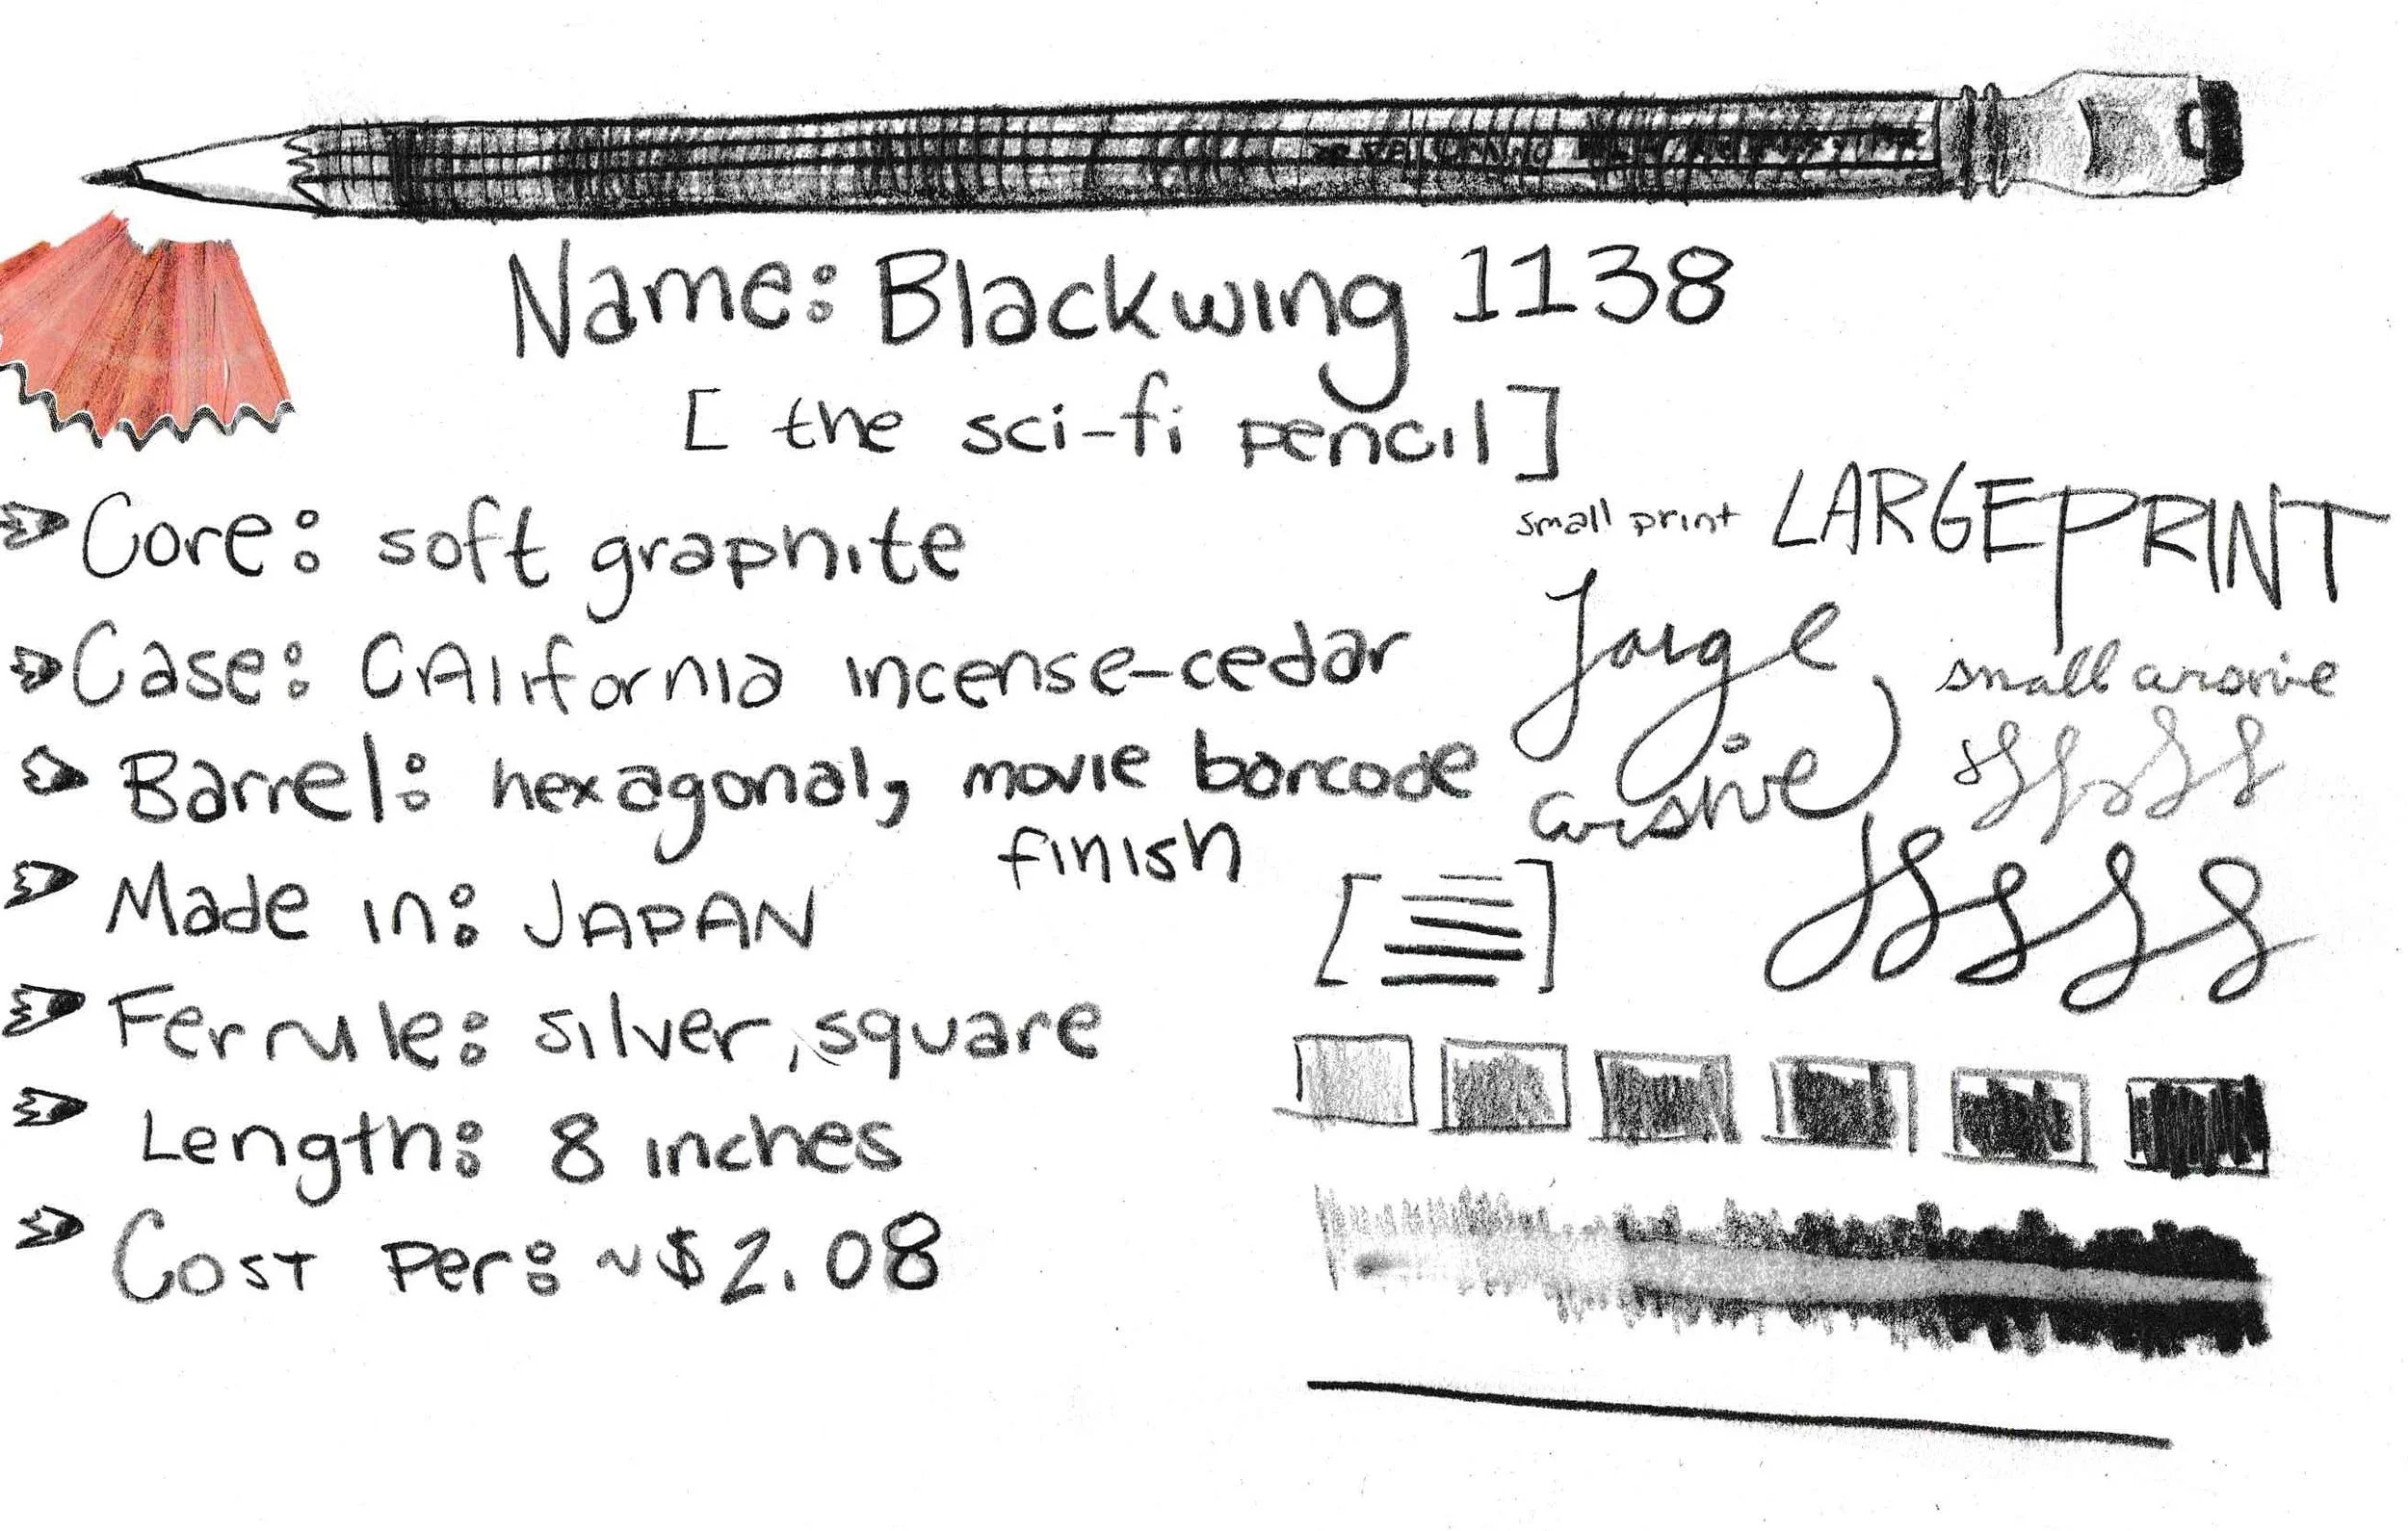 Name: Blackwing 1138
[ the sci-fi pencil ]
Core: soft graphite
Case: CAlifornia incense-cedar
Barrel: hexagonal, movie barcode
finish
Made in: JAPAN
Ferrule: silver, square
Length: 8 inches
Cost per: ~$2.08
small print LARGE PRINT
large
cursive
small cursive